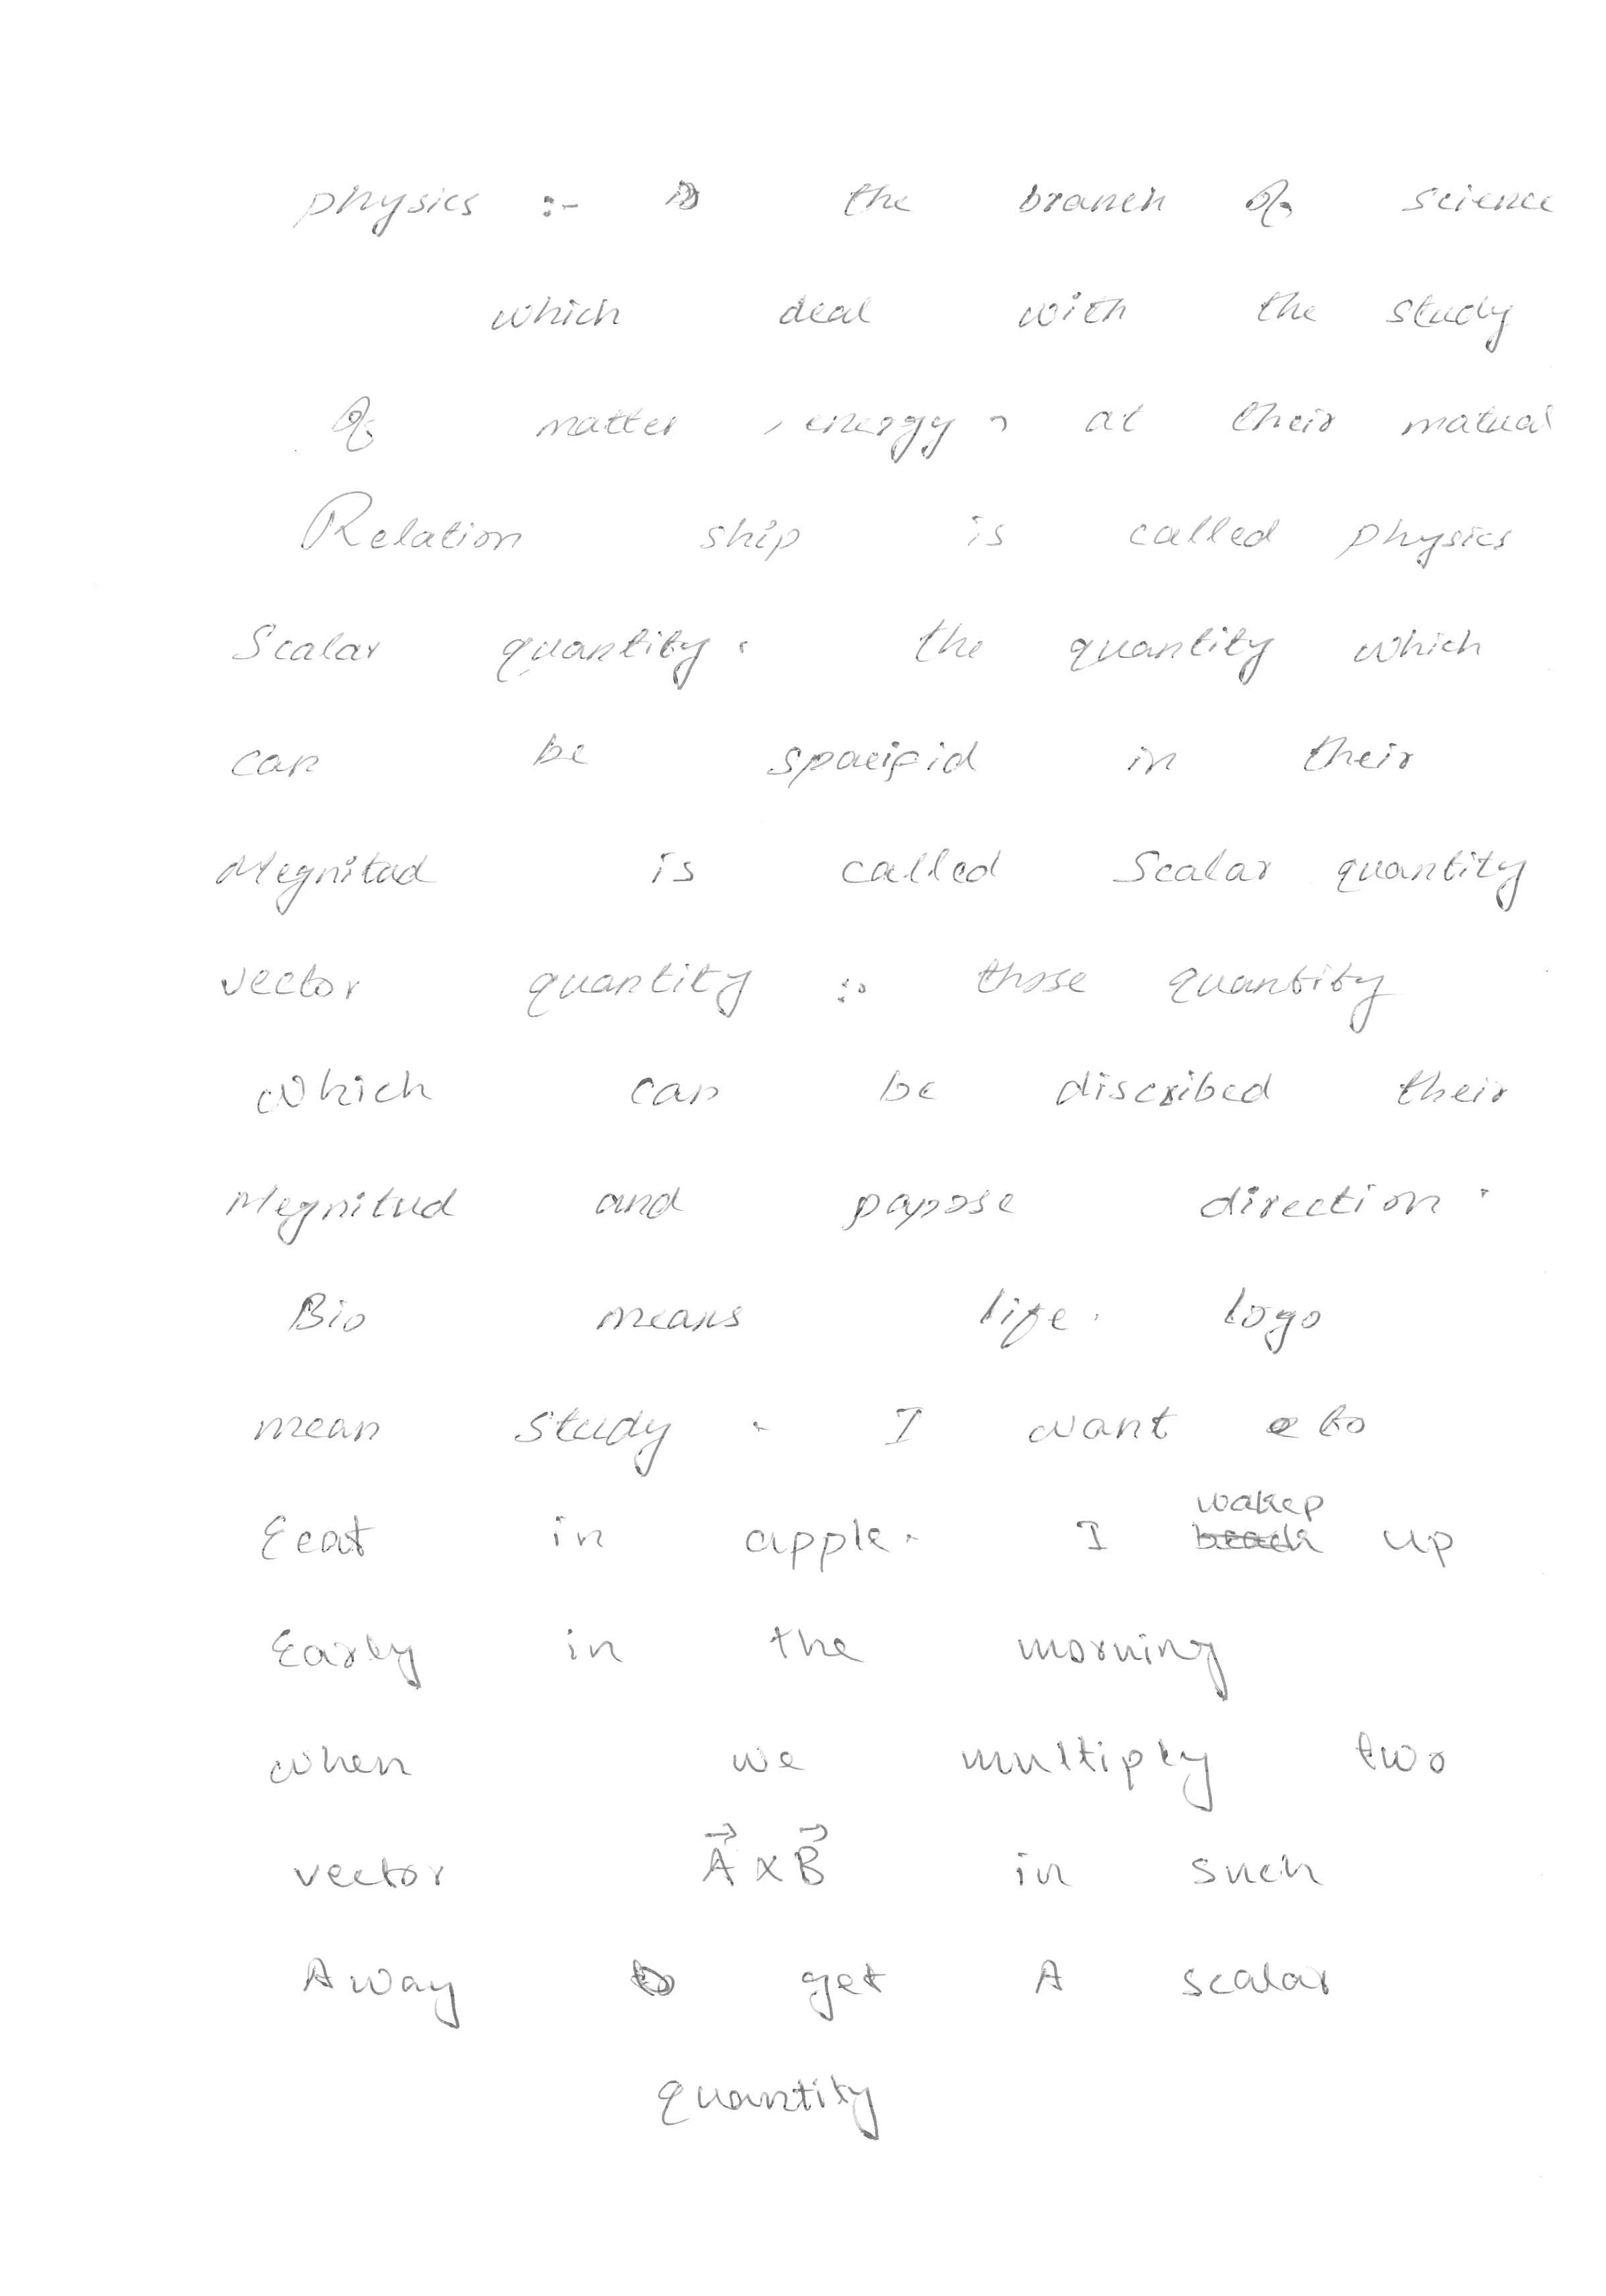 physics :- is the branch of science
which deal with the study
of matter , energy , at their matual
Relation ship is called physics
Scalar quantity . the quantity which
can be spacifid in their
Megnitud is called Scalar quantity
vector quantity :. those quantity
which can be discribed their
Megnitud and papose direction .
Bio means life . logo
mean study . I want to
Eeat in apple . I wakep up
Early in the morning
when we multiply two
vector A⃗ x B⃗ in such
A way to get A scalar
quantity